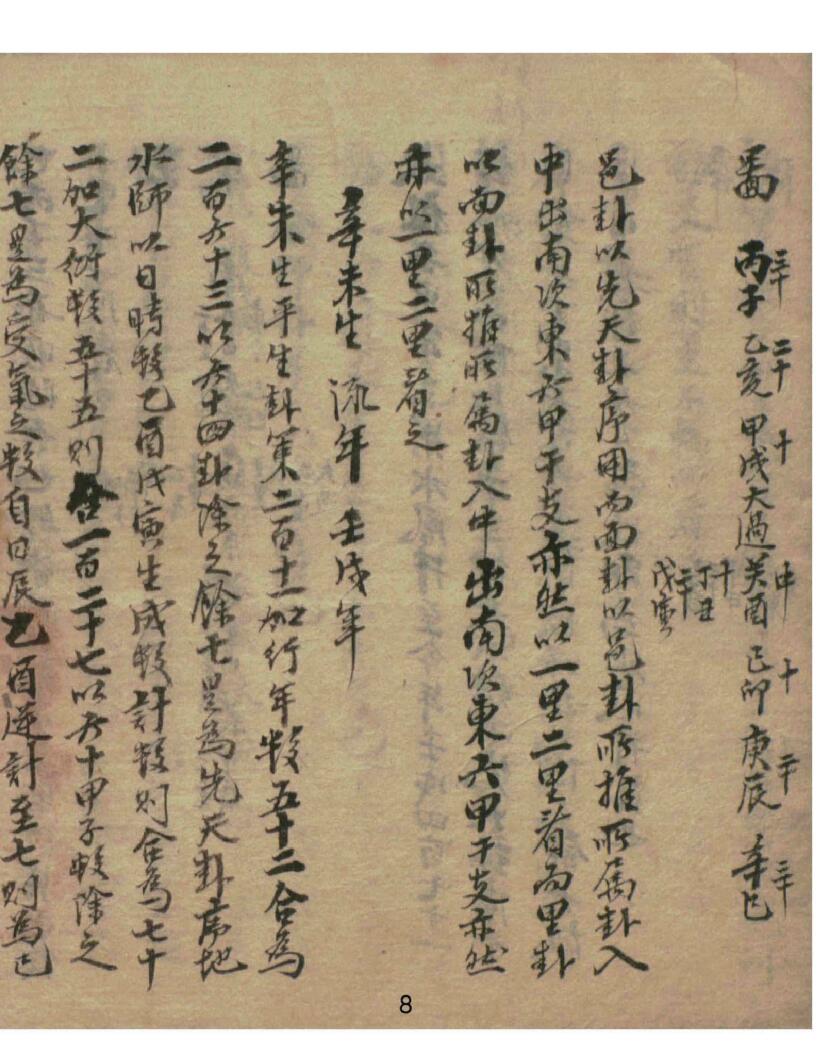 丙子 乙亥 甲戌 大過 癸酉 己卯 庚辰 辛巳
二十 十 中 十 二十 三十
十 丁丑
二十 戊寅
邑卦以先天卦序用而面卦以邑卦所推所屬卦入
中出南次東六甲干支亦然以一里二里看而里卦
以面卦所推所屬卦入中出南次東六甲干支亦然
亦以一里二里看之
辛未生 流年 壬戌年
辛未生平生卦策二百十一加行年數五十二合為
二百六十三以六十四卦除之餘七是為先天卦序地
水師以日時數乙酉戊寅生成數計數則合為七十
二加大衍數五十五則合一百二十七以六十甲子數除之
餘七是為受氣之數自日辰乙酉逆計至七則為己
8